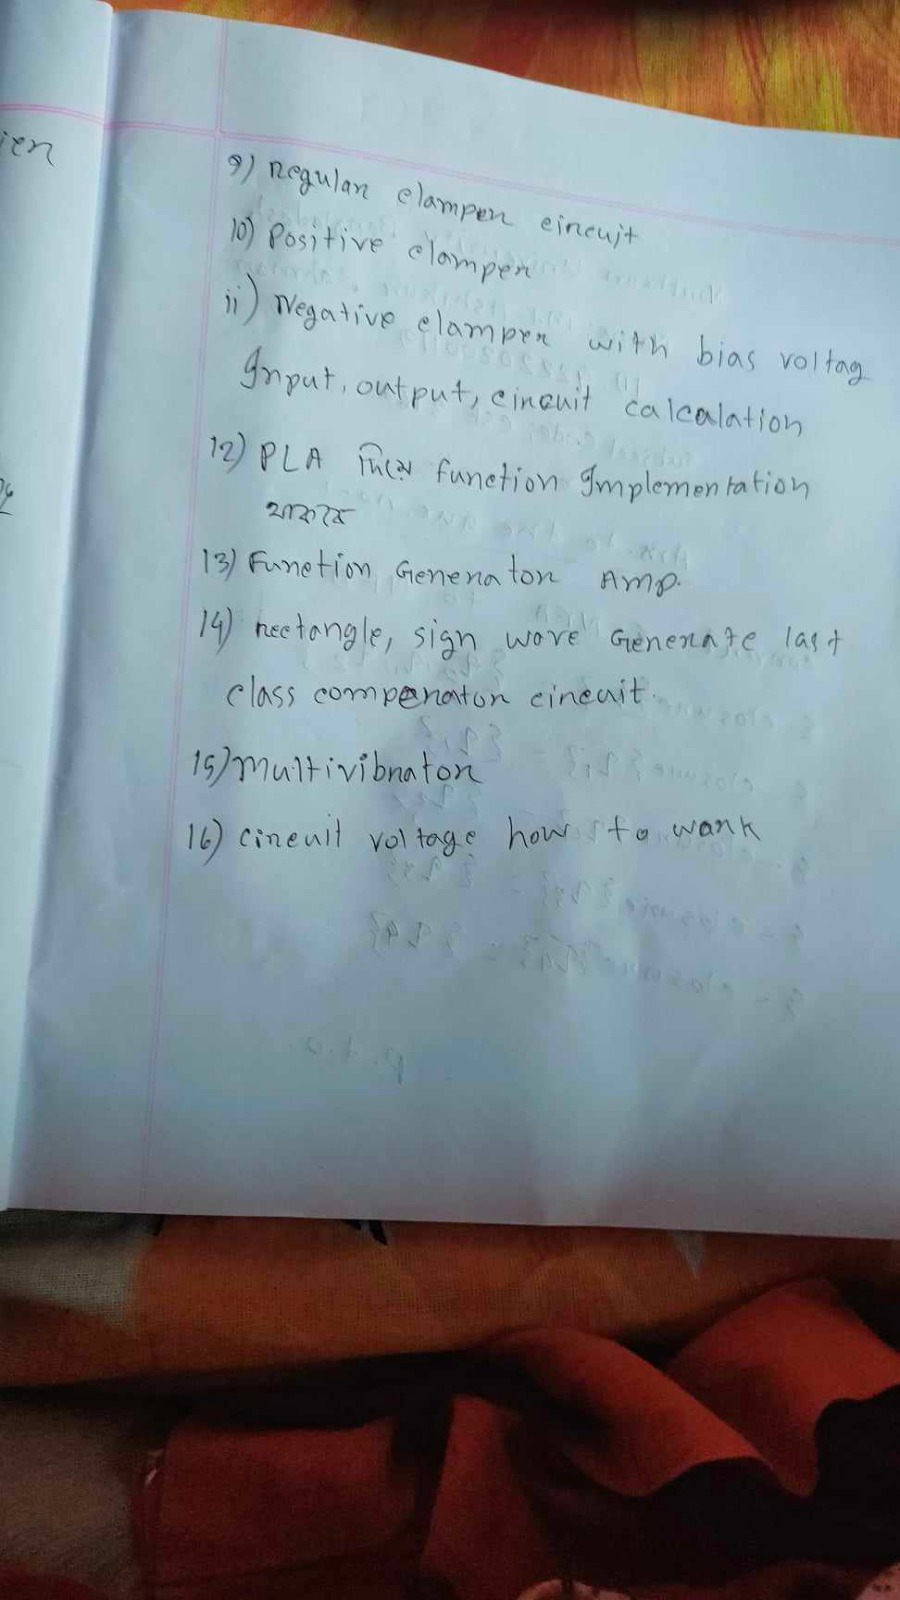 ien
9) Regular clamper circuit
10) Positive clamper
11) Negative clamper with bias voltag
Input, output, circuit calcalation
12) PLA দিয়ে function Implementation
থাকবে
13) Function Generator Amp.
14) rectangle, sign wave Generate last
class comperator circuit.
15) multivibrator
16) circuit voltage how to wark